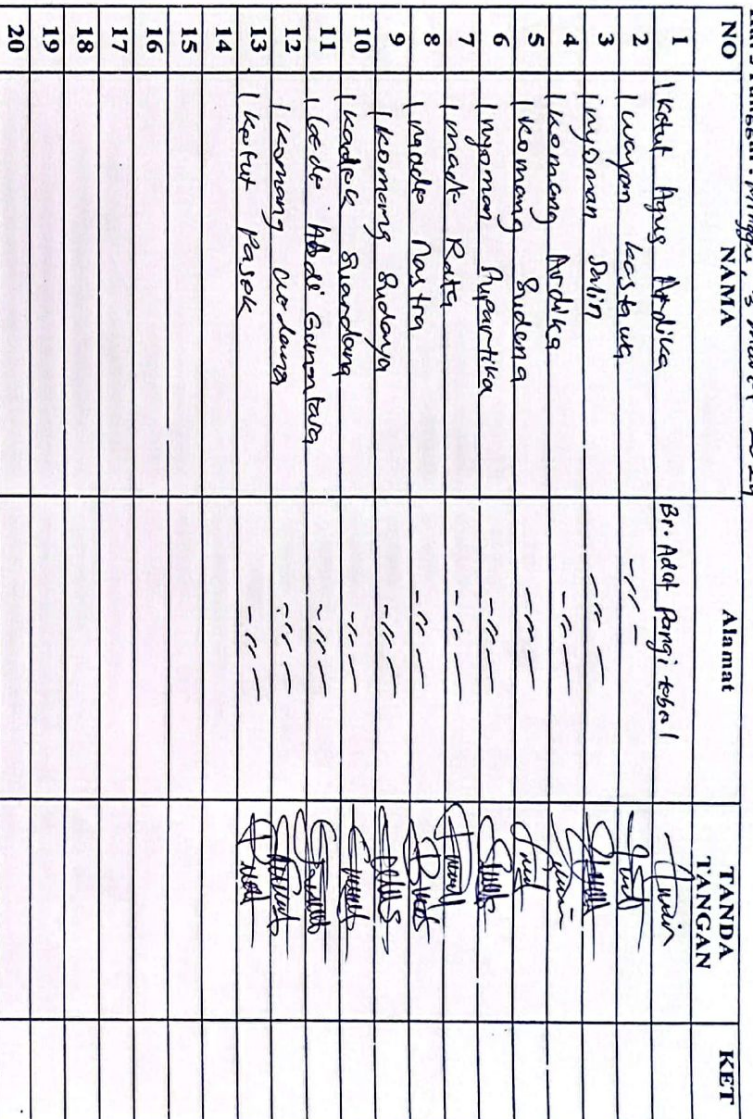 NO NAMA Alamat TANDA TANGAN KET
1 I Ketut Agus Ardika Br. Adat Pangi tebel
2 I wayan Kastawa -〃-
3 I nyoman Salin -〃-
4 I Komang Ardika -〃-
5 I Komang Sudena -〃-
6 I nyoman Suparttika -〃-
7 I made Rata -〃-
8 I made nastra -〃-
9 I Komang Sudaya -〃-
10 I Kadek Suardana -〃-
11 I Gede Abdi Gunantara -〃-
12 I Komang -〃-
13 I Ketut Pasek -〃-
14
15
16
17
18
19
20